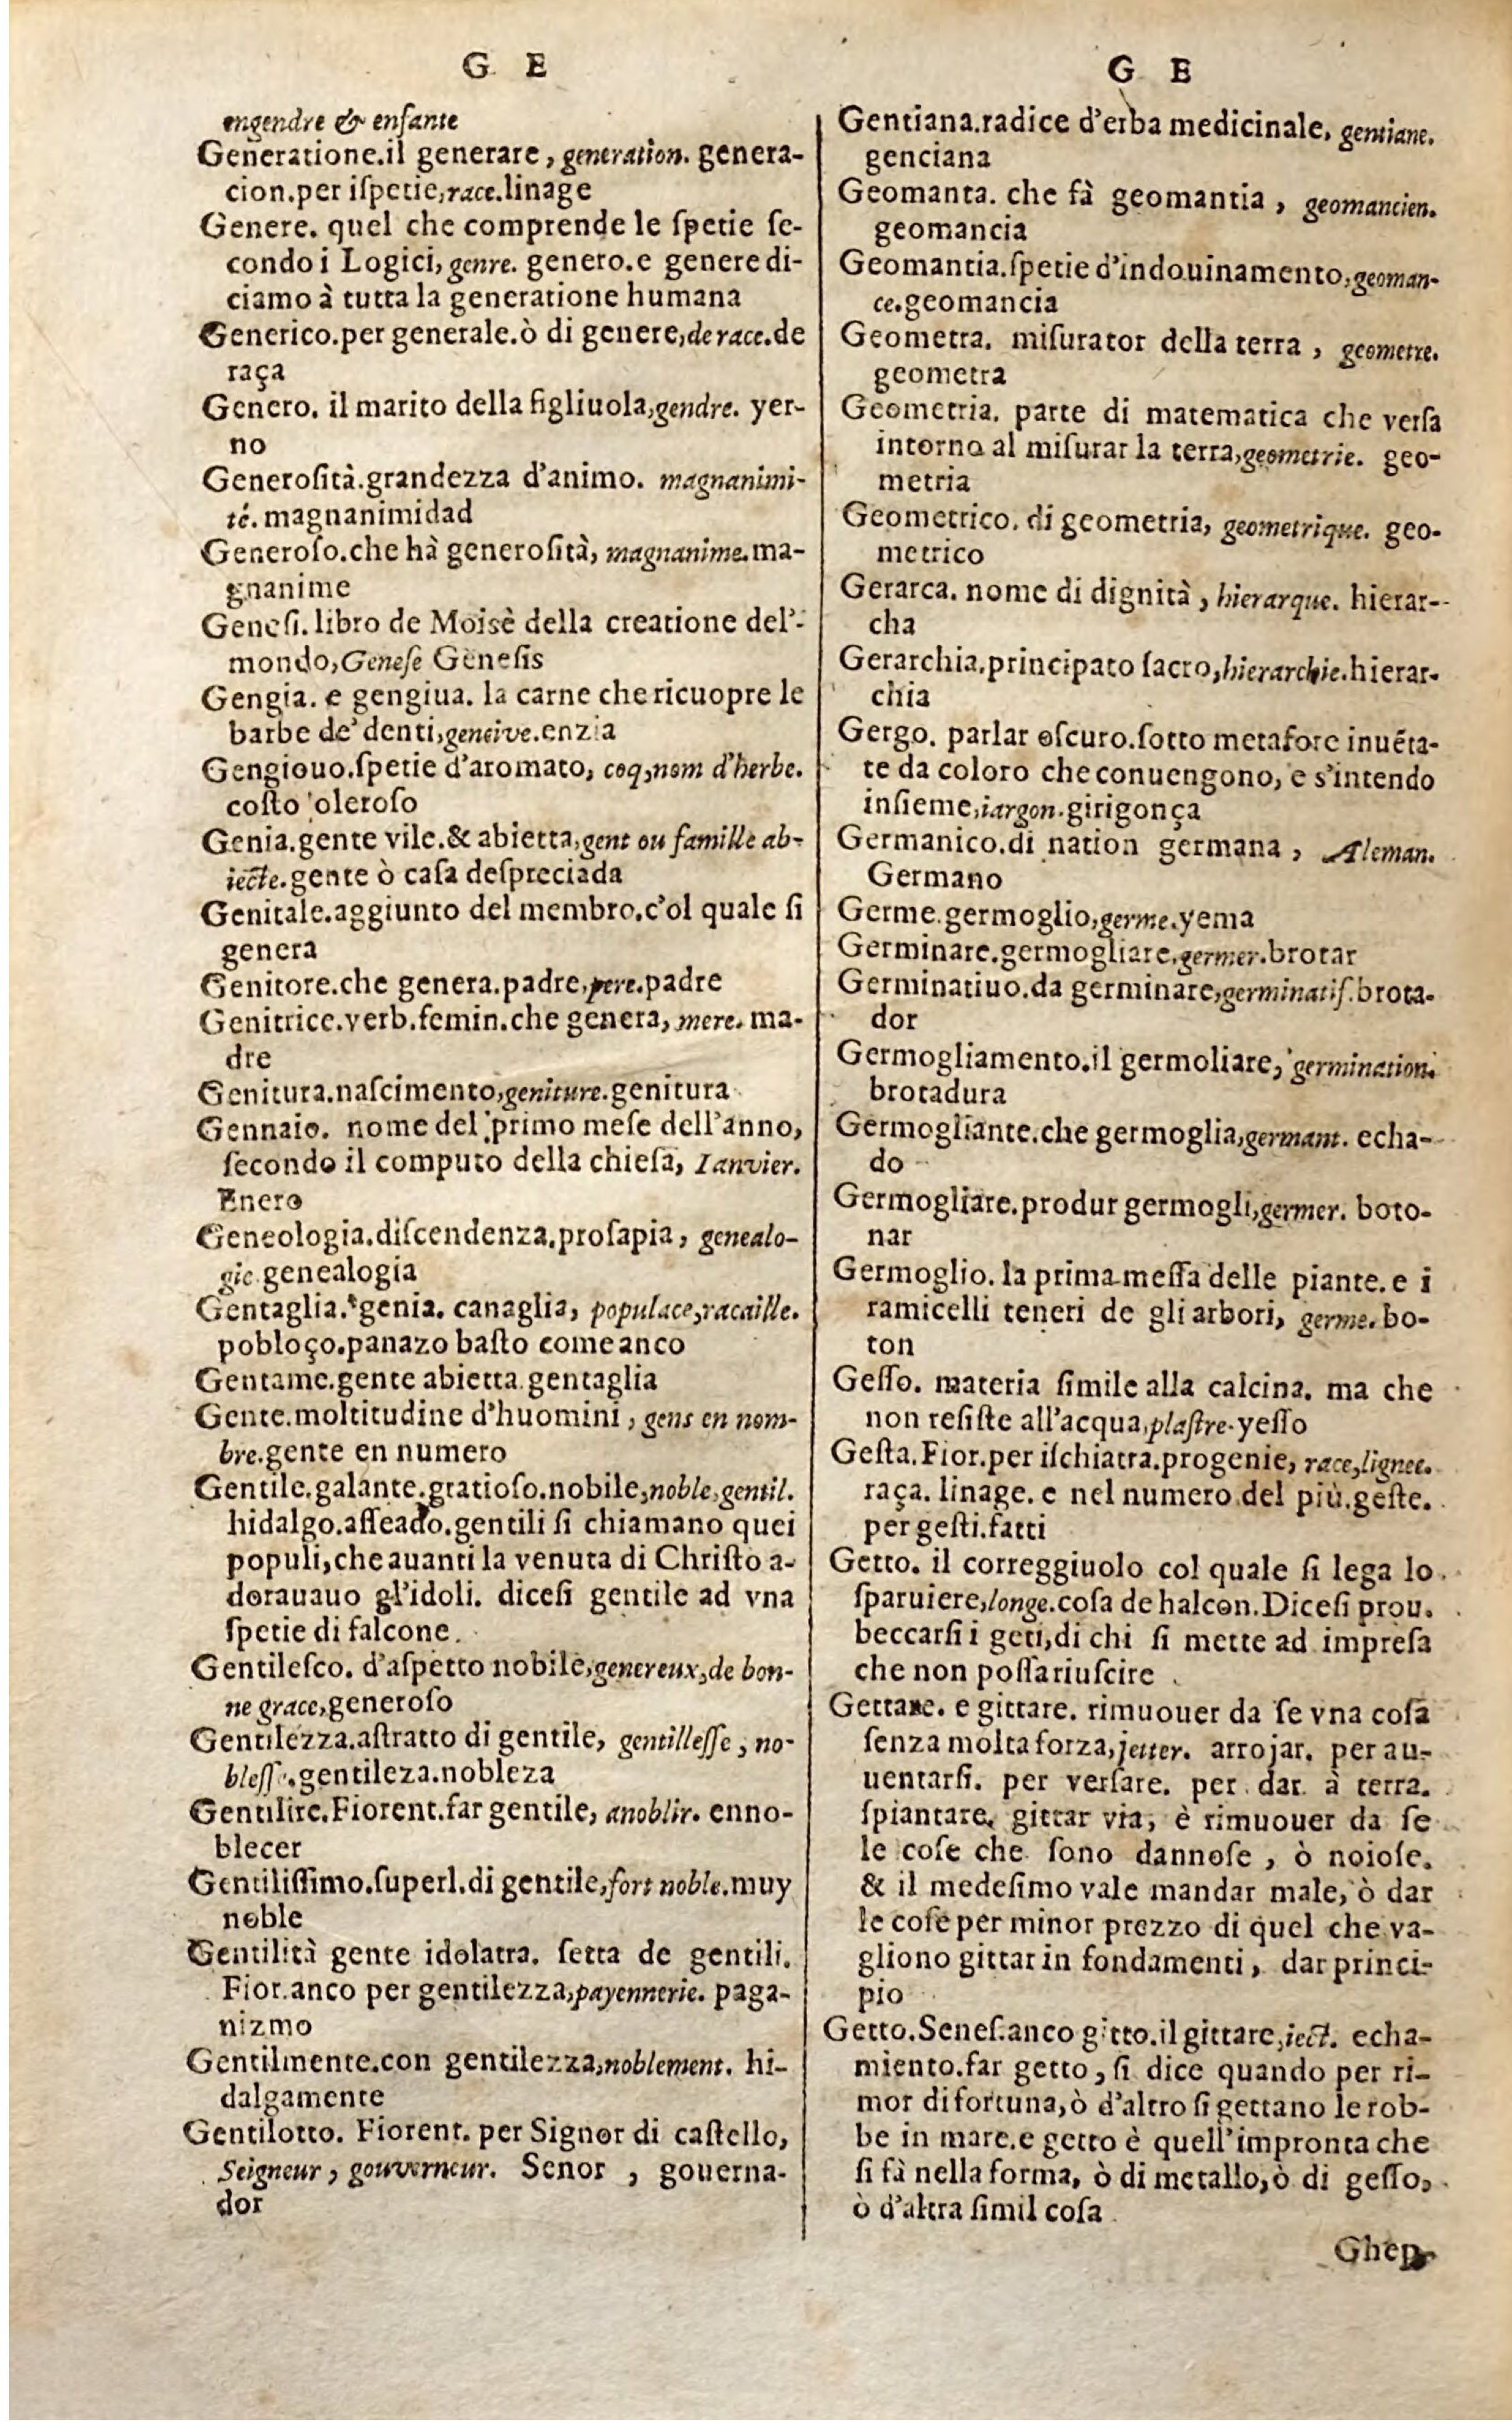 G E
engendre & enfante
Generatione.il generare, generation. genera-
cion.per iſpetie,race.linage
Genere. quel che comprende le ſpetie ſe-
condo i Logici,genre. genero.e genere di-
ciamo à tutta la generatione humana
Generico.per generale.ò di genere,de race.de
raça
Genero. il marito della figliuola,gendre. yer-
no
Generoſità.grandezza d'animo. magnanimi-
té. magnanimidad
Generoſo.che hà generoſità, magnanime.ma-
gnanime
Geneſi. libro de Moisè della creatione del'-
mondo,Geneſe Geneſis
Gengia. e gengiua. la carne che ricuopre le
barbe de' denti,gencive.enzia
Gengiouo.ſpetie d'aromato, coq,nom d'herbe.
coſto oleroſo
Genia.gente vile.& abietta,gent ou famille ab-
iecte.gente ò caſa deſpreciada
Genitale.aggiunto del membro.c'ol quale ſi
genera
Genitore.che genera.padre,pere.padre
Genitrice.verb.femin.che genera, mere. ma-
dre
Genitura.naſcimento,geniture.genitura
Gennaio. nome del primo meſe dell'anno,
ſecondo il computo della chieſa, Ianvier.
Enero
Geneologia.diſcendenza.proſapia, genealo-
gie genealogia
Gentaglia. genia. canaglia, populace,racaille.
pobloço.panazo baſto come anco
Gentame.gente abietta gentaglia
Gente.moltitudine d'huomini, gens en nom-
bre.gente en numero
Gentile.galante.gratioſo.nobile,noble,gentil.
hidalgo.aſſeado.gentili ſi chiamano quei
populi,che auanti la venuta di Chriſto a-
dorauauo gl'idoli. diceſi gentile ad vna
ſpetie di falcone.
Gentileſco. d'aſpetto nobile,genereux,de bon-
ne grace,generoſo
Gentilezza.aſtratto di gentile, gentilleſſe, no-
bleſſe.gentileza.nobleza
Gentilire.Fiorent.far gentile, anoblir. enno-
blecer
Gentiliſſimo.ſuperl.di gentile,fort noble.muy
noble
Gentilità gente idolatra. ſetta de gentili.
Fior.anco per gentilezza,payennerie. paga-
nizmo
Gentilmente.con gentilezza,noblement. hi-
dalgamente
Gentilotto. Fiorent. per Signor di caſtello,
Seigneur, gouverneur. Senor, gouerna-
dor
G E
Gentiana.radice d'erba medicinale, gentiane.
genciana
Geomanta. che fà geomantia, geomancien.
geomancia
Geomantia.ſpetie d'indouinamento,geoman-
ce.geomancia
Geometra. miſurator della terra, geometre.
geometra
Geometria. parte di matematica che verſa
intorno al miſurar la terra,geometrie. geo-
metria
Geometrico. di geometria, geometrique. geo-
metrico
Gerarca. nome di dignità, hierarque. hierar-
cha
Gerarchia.principato ſacro,hierarchie.hierar-
chia
Gergo. parlar oſcuro.ſotto metafore inuẽta-
te da coloro che conuengono, e s'intendo
inſieme,iargon.girigonça
Germanico.di nation germana, Aleman.
Germano
Germe.germoglio,germe.yema
Germinare.germogliare,germer.brotar
Germinatiuo.da germinare,germinatif.brota-
dor
Germogliamento.il germoliare, germination.
brotadura
Germogliante.che germoglia,germant. echa-
do
Germogliare.produr germogli,germer. boto-
nar
Germoglio. la prima meſſa delle piante. e i
ramicelli teneri de gli arbori, germe. bo-
ton
Geſſo. materia ſimile alla calcina. ma che
non reſiſte all'acqua,plaſtre.yeſſo
Geſta.Fior.per iſchiatta.progenie, race,lignee.
raça. linage. e nel numero del più.geſte.
per geſti.fatti
Getto. il correggiuolo col quale ſi lega lo
ſparuiere,longe.coſa de halcon.Diceſi prou.
beccarſi i geti,di chi ſi mette ad impreſa
che non poſſa riuſcire
Gettare. e gittare. rimuouer da ſe vna coſa
ſenza molta forza,jetter. arrojar. per au-
uentarſi. per verſare. per dar à terra.
ſpiantare. gittar via, è rimuouer da ſe
le coſe che ſono dannoſe, ò noioſe.
& il medeſimo vale mandar male, ò dar
le coſe per minor prezzo di quel che va-
gliono gittar in fondamenti, dar princi-
pio
Getto.Seneſ.anco gitto.il gittare,iect. echa-
miento.far getto, ſi dice quando per ri-
mor di fortuna,ò d'altro ſi gettano le rob-
be in mare.e getto è quell'impronta che
ſi fà nella forma, ò di metallo,ò di geſſo,
ò d'altra ſimil coſa
Ghep